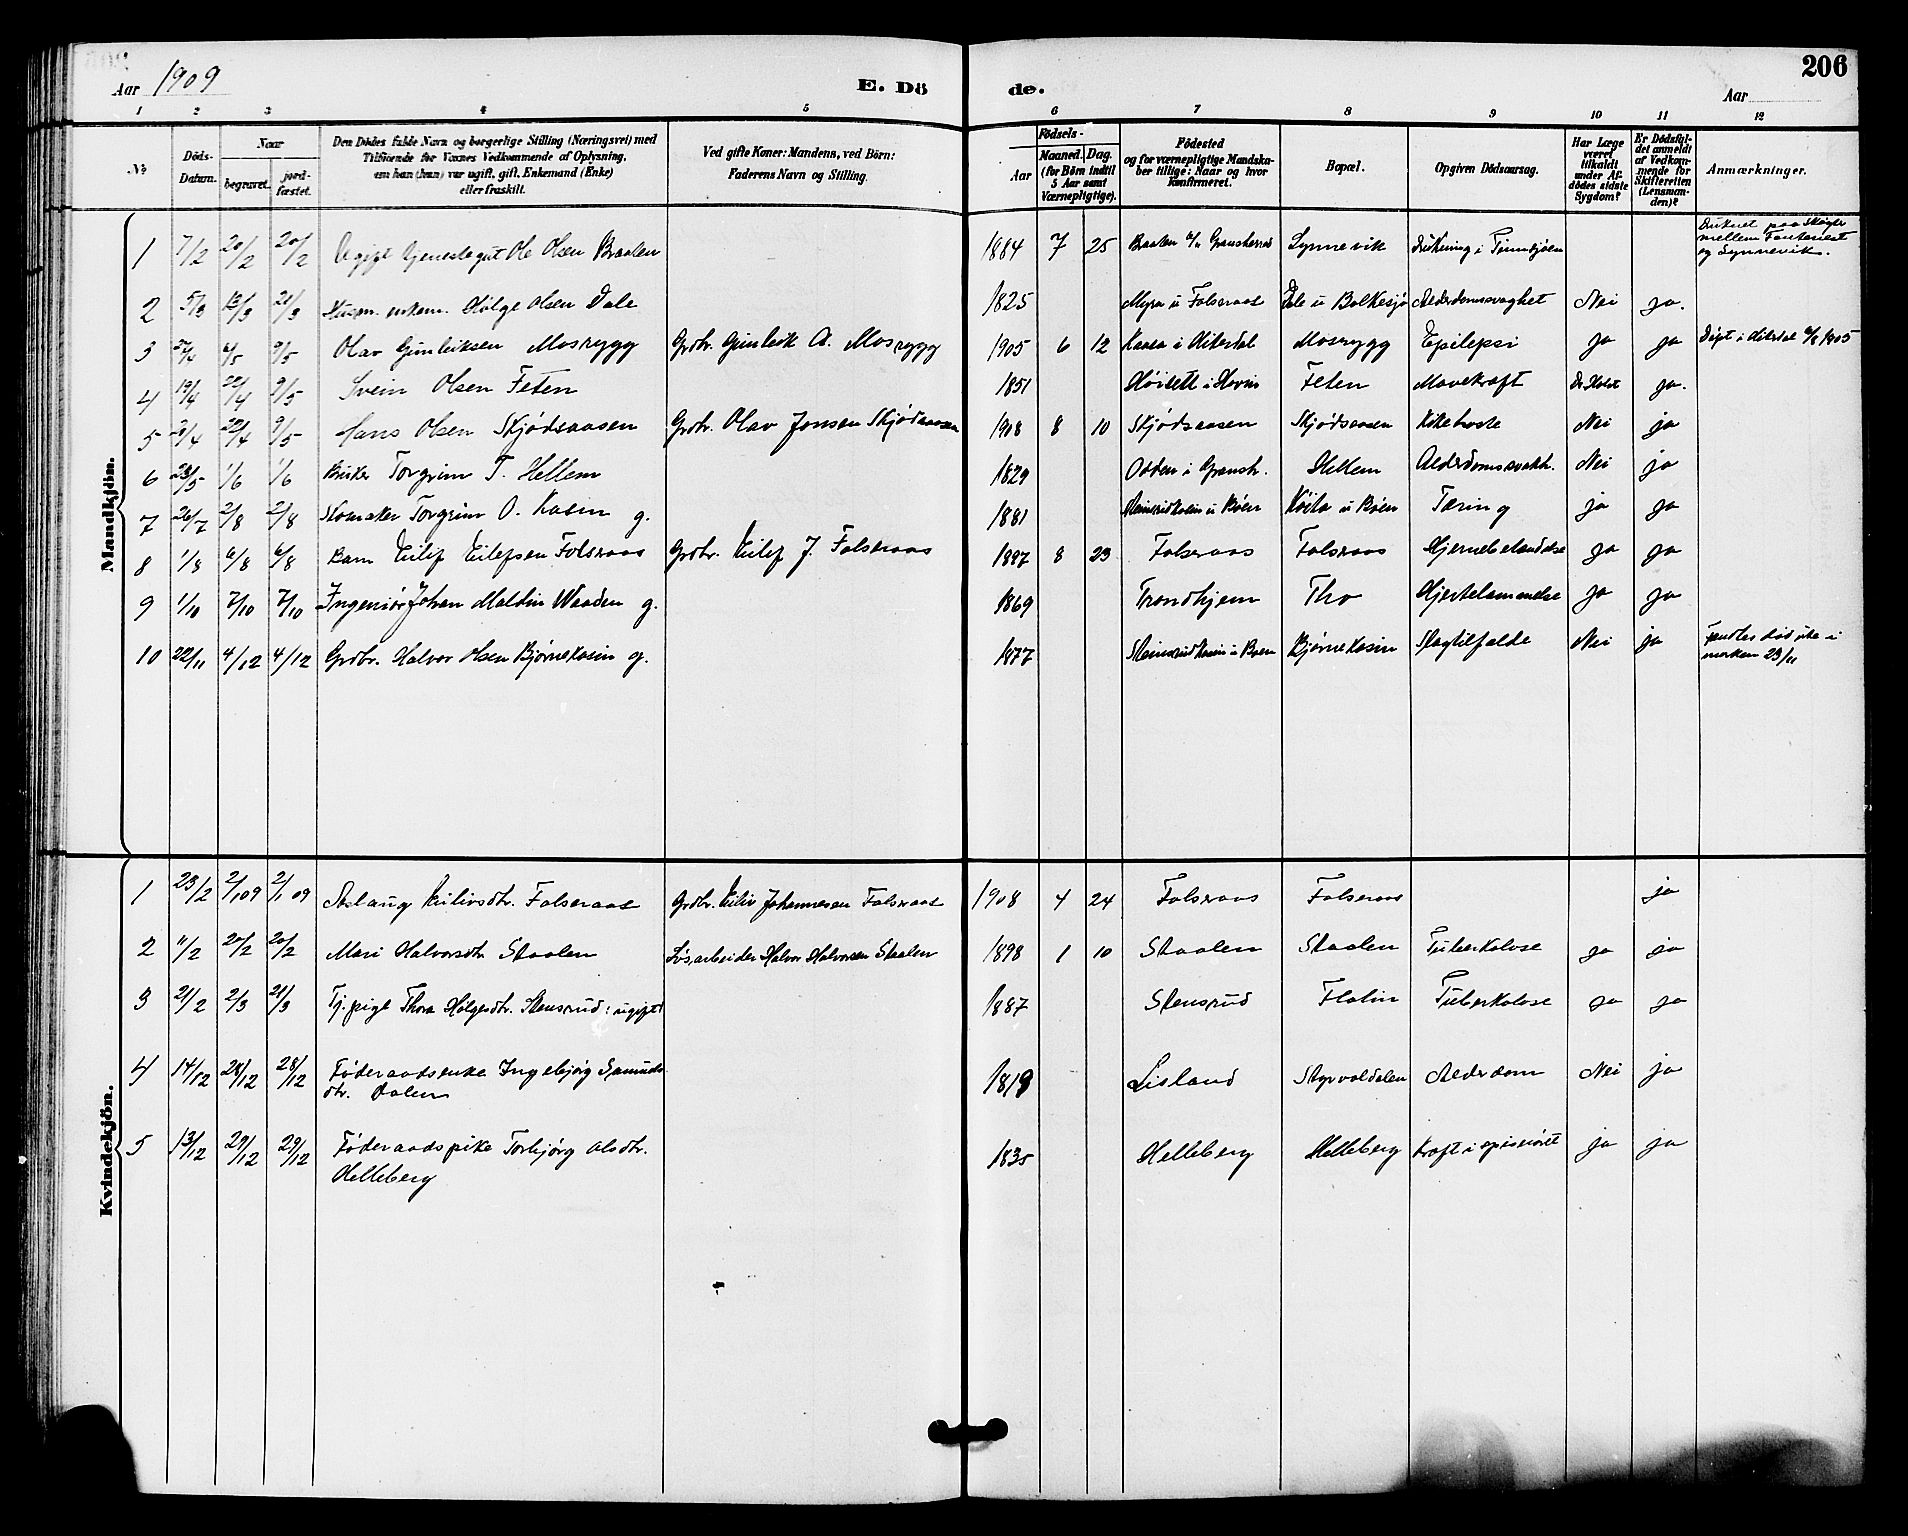 Aar 1909
E. Dö
de.
206
Aar
1 2 3 4 5 6 7 8 9 10 11 12
No
Döds-
Datum.
Naar
begravet.
jord-
fæstet.
Den Dödes fulde Navn og borgerlige Stilling (Næringsvei) med
Tilföiende for Voxnes Vedkommende af Oplysning,
om han (hun) var ugift, gift, Enkemand (Enke)
eller fraskilt.
Ved gifte Koner: Mandens, ved Börn:
Faderens Navn og Stilling.
Födsels-
Aar
Maaned. Dag.
(for Börn indtil
5 Aar samt
Værnepligtige).
Födested
og for værnepligtige Mandska-
ber tillige: Naar og hvor
konfirmeret.
Bopæl.
Opgiven Dödsaarsag.
Har Læge
været
tilkaldt
under Af-
dödes sidste
Sygdom?
Er Dödsfal-
det anmeldt
af Vedkom-
mende for
Skifteretten
(Lensman-
den)?
Anmærkninger.
Mandkjön.
1 7/2 20/2 20/2 Ugift tjenestegut Ole Olsen Braaten 1884 7 25 Braaten Gransherred Synnevik Drukning i Tinnsjøen Druknet paa Skøyter
mellem Fantenest
og Synnevik.
2 5/3 13/3 21/3 Husm. enkem. Helge Olsen Dale 1825 Myra u Folseraas Dale u Bolkesjø Alderdomssvaghet Nei ja.
3 27/4 4/5 9/5 Olav Gunleiksen Mosrygg Grdbr. Gunleik A. Mosrygg 1905 6 12 Kaasa i Hiterdal Mosrygg Epilepsi ja ja Døpt i Hiterdal 6/8 1905
4 19/4 22/4 9/5 Svein Olsen Feten 1851 Høisett i Hovin Feten Mavekræft Dr. Holst ja.
5 21/4 29/4 9/5 Hans Olsen Skjødsaasen Grdbr. Olav Jonsen Skjødsaasen 1908 8 10 Skjødsaasen Skjødsaasen Kikhoste Nei ja
6 23/5 1/6 1/6 Bruker Torgrim T. Hellem 1829 Odden i Gransh. Hellem Alderdomssvakh. Nei ja
7 26/7 2/8 2/8 Skomaker Torgrim O. Kasin g. 1881 Steinsrudkasin u Bøen Køita u Bøen Tæring ja ja
8 1/8 6/8 6/8 Barn Eilef Eilefsen Folseraas Grdbr. Eilef J. Folseraas 1897 8 23 Folseraas Folseraas Hjernebetændelse ja ja
9 1/10 7/10 7/10 Ingeniør Johan Maldin Waaden g. 1869 Trondhjem Tho Hjertelammelse ja ja
10 22/11 4/12 4/12 Grdbr. Halvor Olsen Bjørnekasin g. 1877 Steinsrudkasin u Bøen Bjørnekasin Slagtilfælde Nei ja Fandtes død ute i
marken 23/11
Kvindekjön.
1 23/2 2/1 09 2/1 09 Aslaug Eilivsdtr. Folseraas Grdbr. Eiliv Johannesen Folseraas 1908 4 24 Folseraas Folseraas ja
2 11/2 20/2 20/2 Mari Halvorsdtr Staalen Løsarbeider Halvor Halvorsen Staalen 1898 1 10 Staalen Staalen Tuberkolose ja ja
3 21/2 2/3 21/3 Tj. pige Thora Helgesdtr. Stensrud: ugift 1887 Stensrud Flatin Tuberkolose ja ja
4 14/12 28/12 28/12 Føderaadsenke Ingebjørg Gjemunds-
dtr. Dalen 1819 Lisland Styrvoldalen Alderdom Nei ja
5 13/12 29/12 29/12 Føderaadspike Torbjørg Olsdtr.
Helleberg 1835 Helleberg Helleberg Kræft i spiserøret ja ja